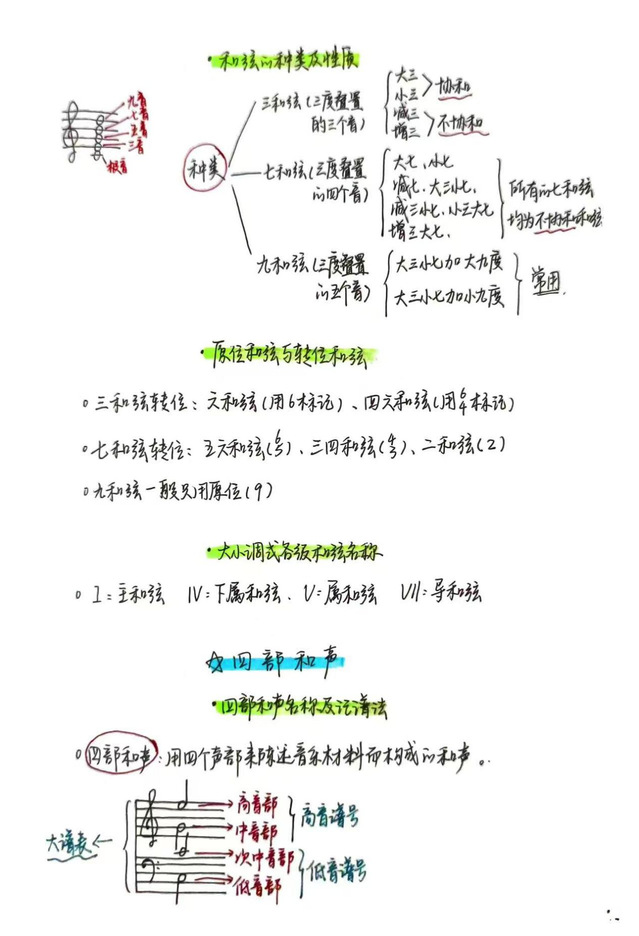 ·和弦的种类及性质
九音
七音
五音
三音
根音
种类
三和弦(三度叠置的三个音)
大三
小三
协和
减三
增三
不协和
七和弦(三度叠置的四个音)
大七、小七
减七、大三小七、
减三小七、小三大七
增三大七、
所有的七和弦
均为不协和和弦
九和弦(三度叠置的五个音)
大三小七加大九度
大三小七加小九度
常用
·原位和弦与转位和弦
三和弦转位:六和弦(用6标记)、四六和弦(用6/4标记)
七和弦转位:五六和弦(6/5)、三四和弦(4/3)、二和弦(2)
九和弦一般只用原位(9)
·大小调式各级和弦名称
I:主和弦 IV:下属和弦、V:属和弦 VII:导和弦
☆四部和声
·四部和声名称及记谱法
四部和声:用四个声部来陈述音乐材料而构成的和声。
大谱表
高音部
中音部
高音谱号
次中音部
低音部
低音谱号